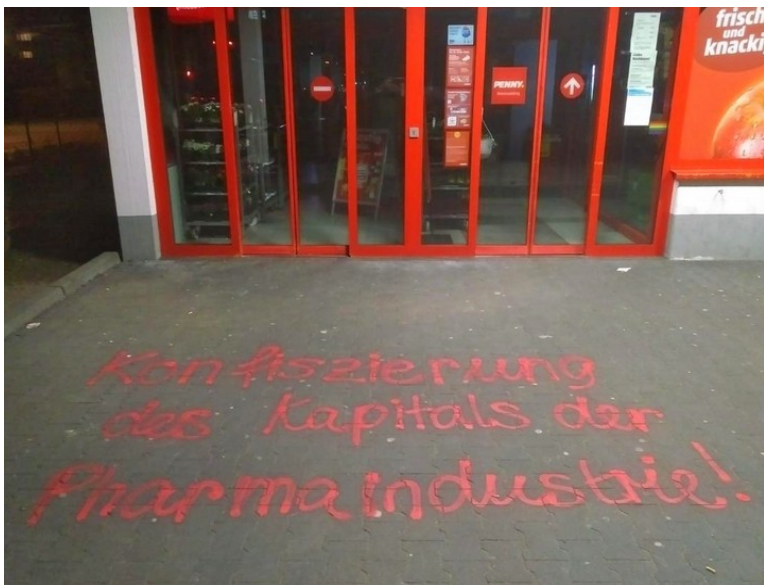 frisch
und
knackig
PENNY.
Konfiszierung
des Kapitals der
Pharmaindustrie!